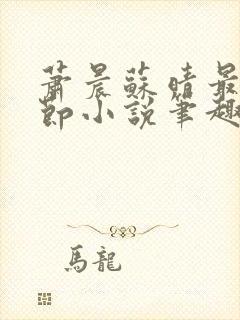 蕭晨蘇晴最
節小說筆趣
馬龍